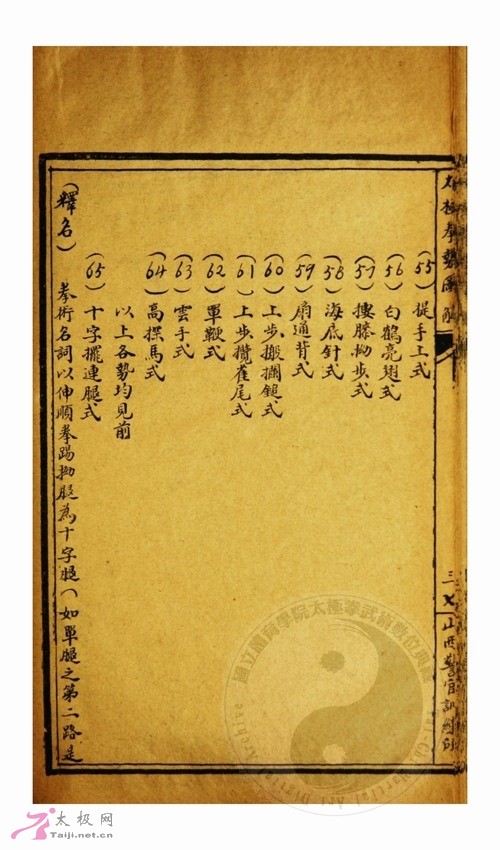 太極拳勢圖解
(55) 提手上式
(56) 白鶴亮翅式
(57) 摟膝拗步式
(58) 海底針式
(59) 扇通背式
(60) 上步搬攔鎚式
(61) 上步攬雀尾式
(62) 單鞭式
(63) 雲手式
(64) 高探馬式
以上各勢均見前
(65) 十字擺連腿式
(釋名) 拳術名詞以伸順拳踢拗腿為十字腿(如單腿之第二路是
山西警官
國立體育學院太極拳武術數位典
太极网
Taiji.net.cn